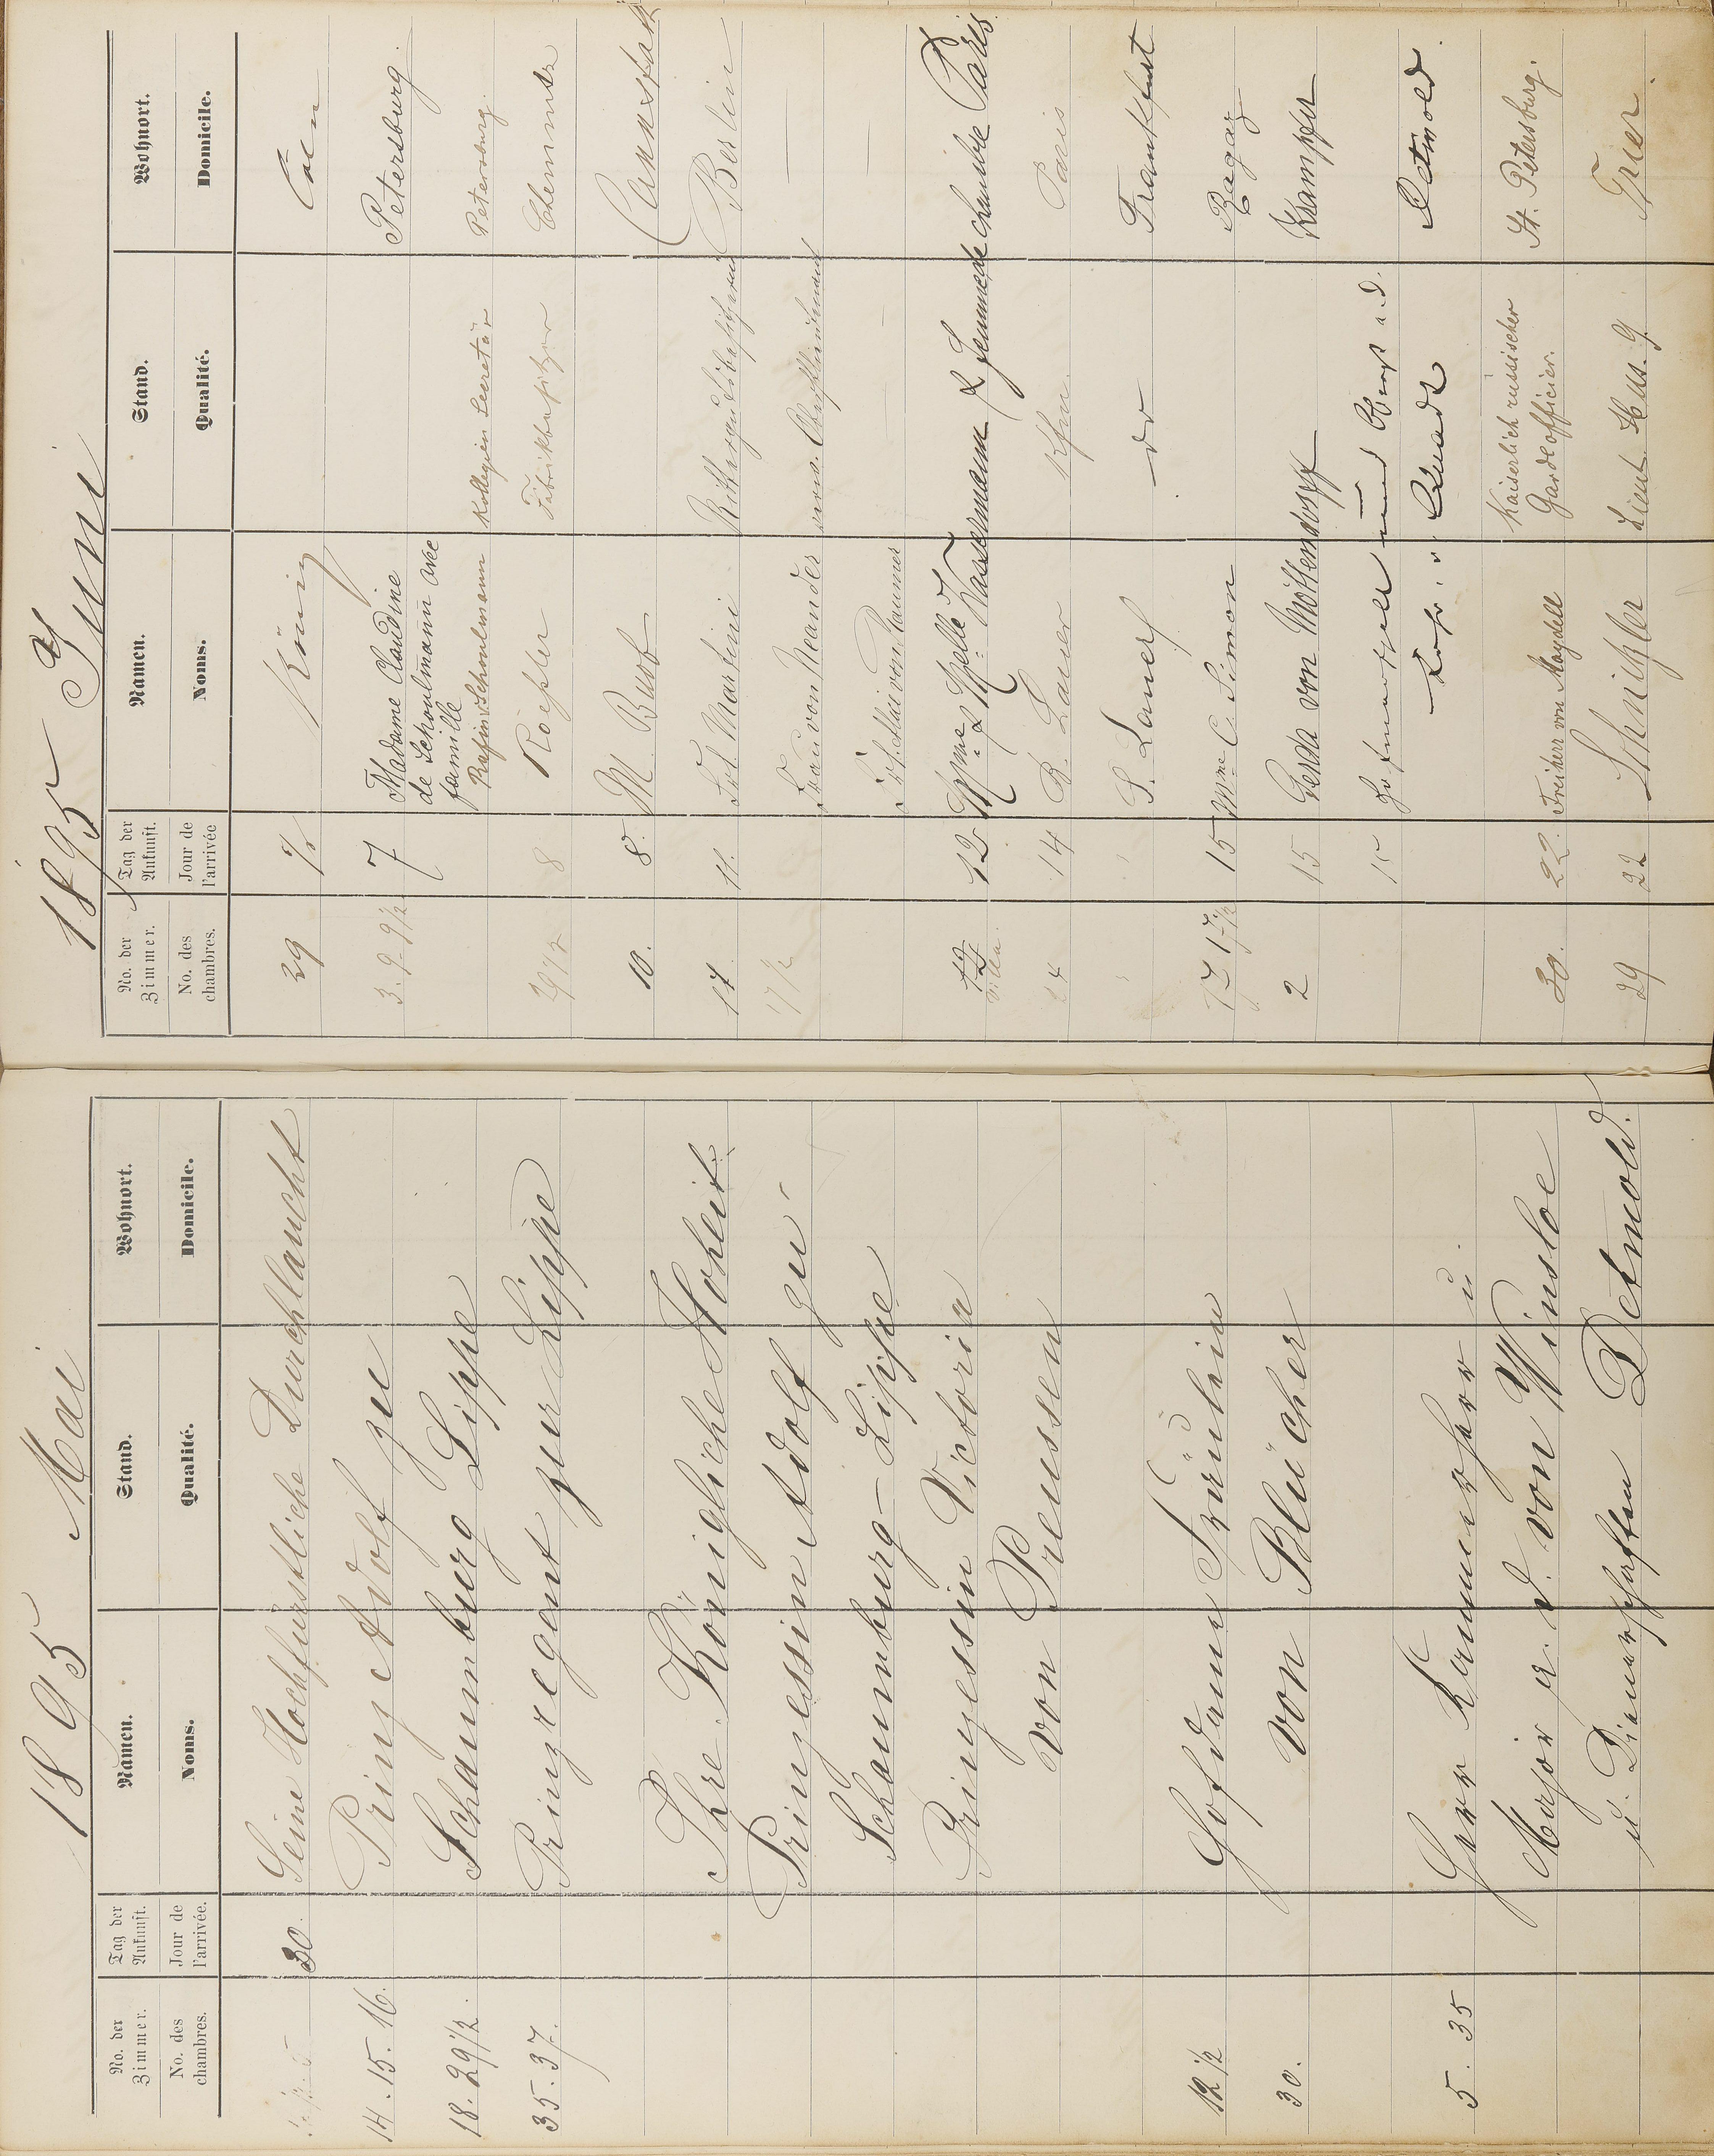 1895 Mai
No. der Zimmer. Tag der Ankunft. Namen. Stand. Wohnort.
No. des chambres. Jour de l'arrivée. Noms. Qualité. Domicile.
30. Seine Hochfürstliche Durchlaucht
14. 15. 16. Prinz Adolf zu
18. 29 1/2. Schaumburg Lippe
35. 37. Prinzregent zur Lippe
Ihre Königliche Hoheit
Prinzessin Adolf zu
Schaumburg-Lippe
Prinzessin Victoria
von Preussen
12 1/2 Hofdame Fräulein
30. von Blücher
5. 35 Herr Kammerherr u.
Major a. d. von Winsloe
u. Dienerschaften Detmold.
1895 Juni
No. der Zimmer. Tag der Ankunft. Namen. Stand. Wohnort.
No. des chambres. Jour de l'arrivée Noms. Qualité. Domicile.
29 König
3. 9. 9 1/2 7 Madame Claudine Petersburg.
de Schoulmann avec
famille
Schoulmann Kollegien Secretär Petersburg.
8 Roessler Fabrikbesitzer Chemnitz
10. 8. M. Buob Cannstatt
14 11. Frl. Martini Rittergutsbesitzerin Berlin
17 1/2 Frau von Neander
von Raumer
12 Mme & Melle Wassermann Paris
villa.
14 B. Lauer Kfm. Paris
S. Lauer do Frankfurt
17 17 1/2 15 Mme C. Simon Ragaz
2 15 Gerda von Möllendorff Krampfer
15 Hofmarschall und Oberst a. D.
Detmold.
30. 22. Freiherr von Maydell Kaiserlich russischer St. Petersburg.
Gardeofficier.
29 22 Schnitzler Lieut. Hus. 9. Trier.